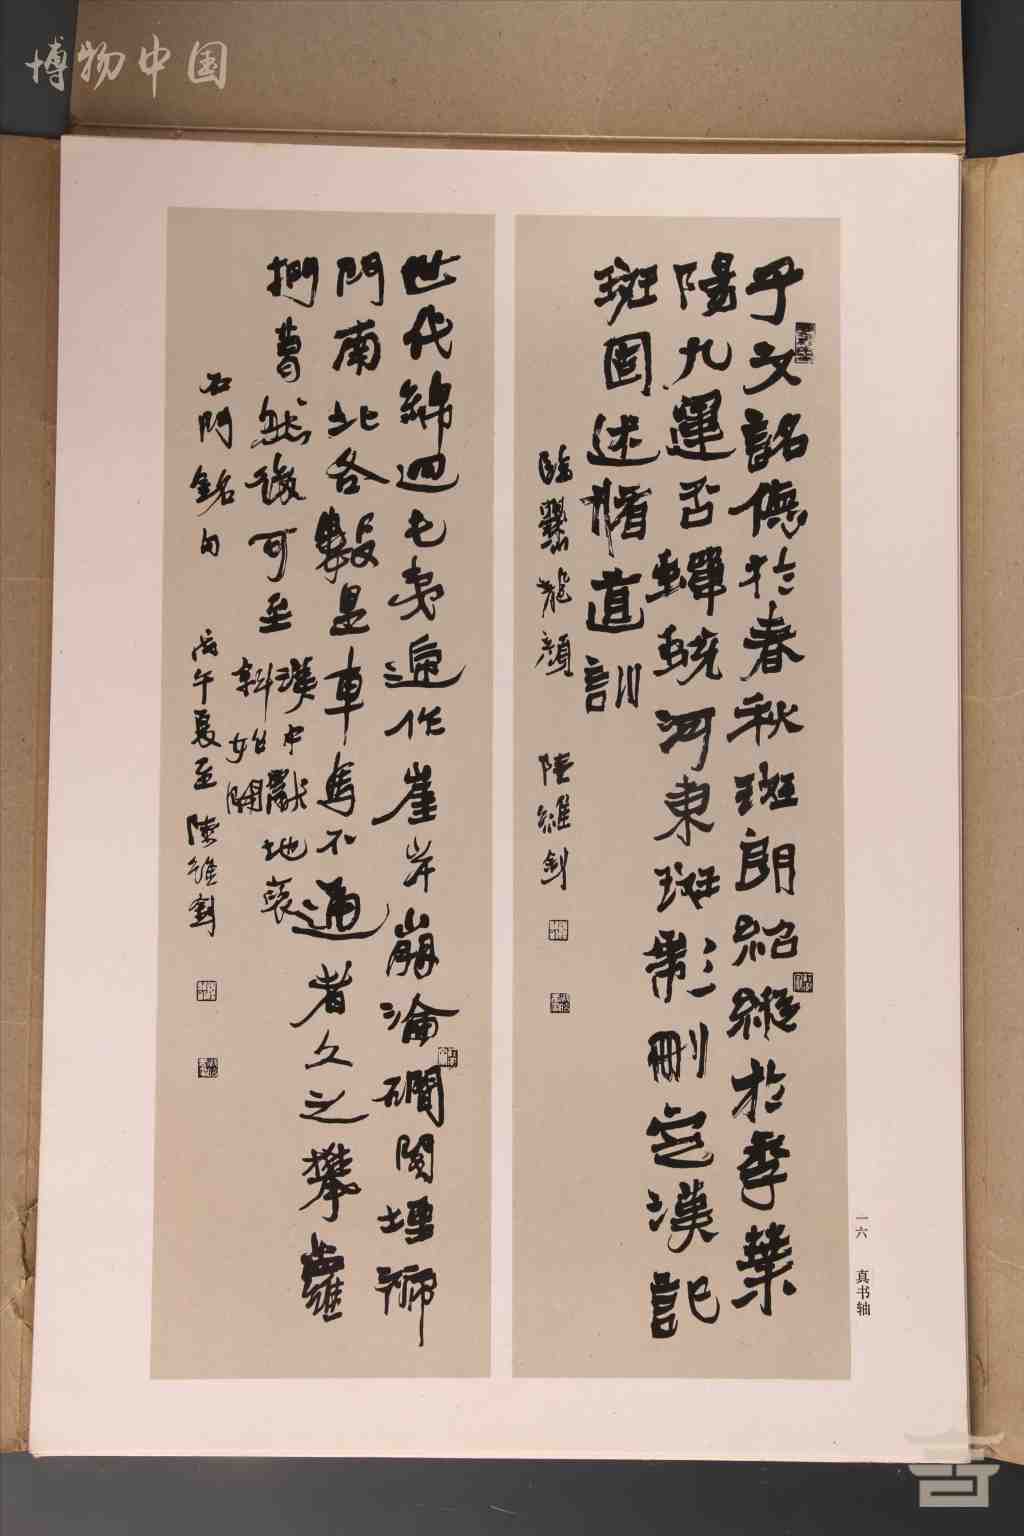 博物中国
子文詺德於春秋斑朗紹縱於季葉
陽九運否蟬蛻河東班彪刪定漢記
班固述脩道訓
臨爨龍顏 陸維釗
世代綿迴屯夷遞作崖岸崩淪磵閣堙褫
門南北各數里車馬不通者久之攀蘿
捫葛然後可至 漢中獻地褒
斜始開
石門銘句 戊午夏至 陸維釗
一六 真书轴